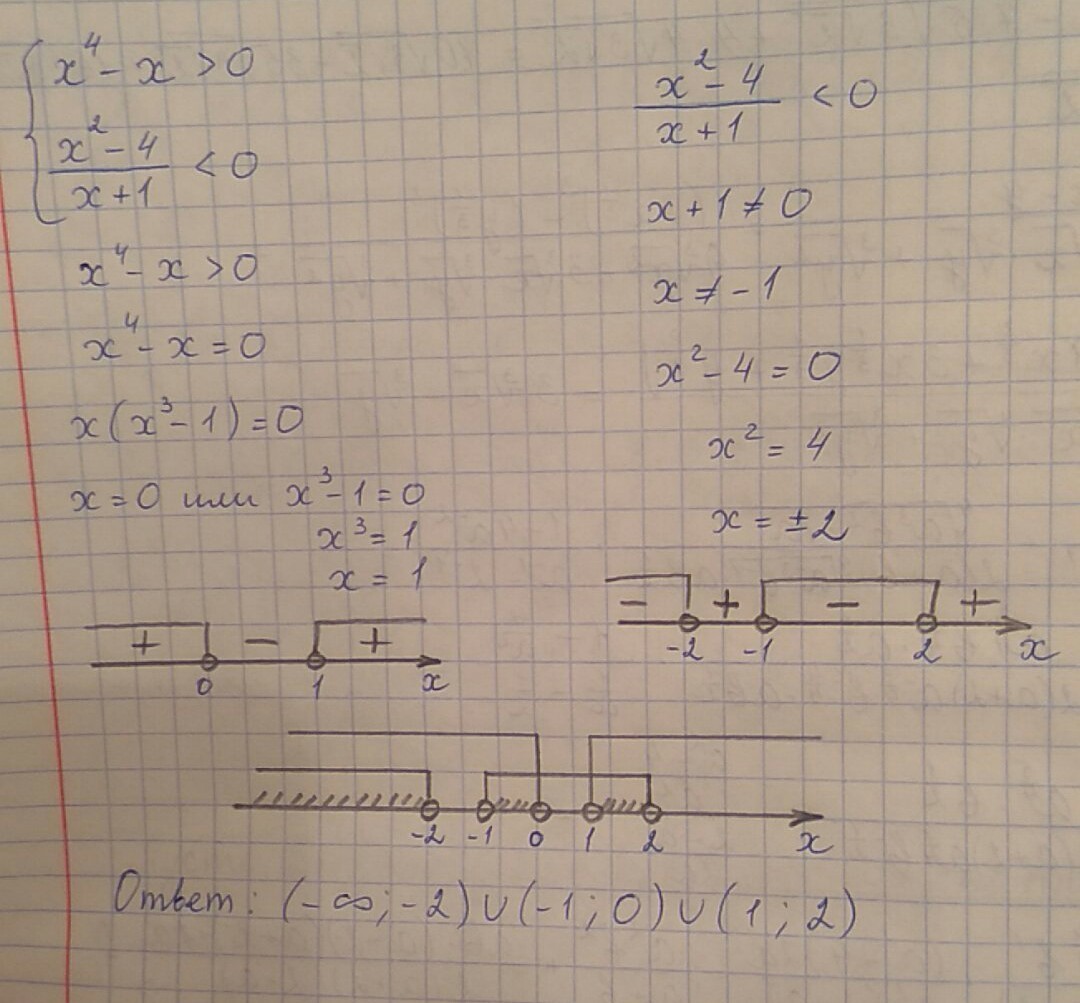 x⁴ - x > 0
(x² - 4)/(x + 1) < 0
x⁴ - x > 0
x⁴ - x = 0
x(x³ - 1) = 0
x = 0 или x³ - 1 = 0
x³ = 1
x = 1
+ - +
0 1 x
(x² - 4)/(x + 1) < 0
x + 1 ≠ 0
x ≠ -1
x² - 4 = 0
x² = 4
x = ±2
- + - +
-2 -1 2 x
-2 -1 0 1 2 x
Ответ: (-∞; -2) ∪ (-1; 0) ∪ (1; 2)